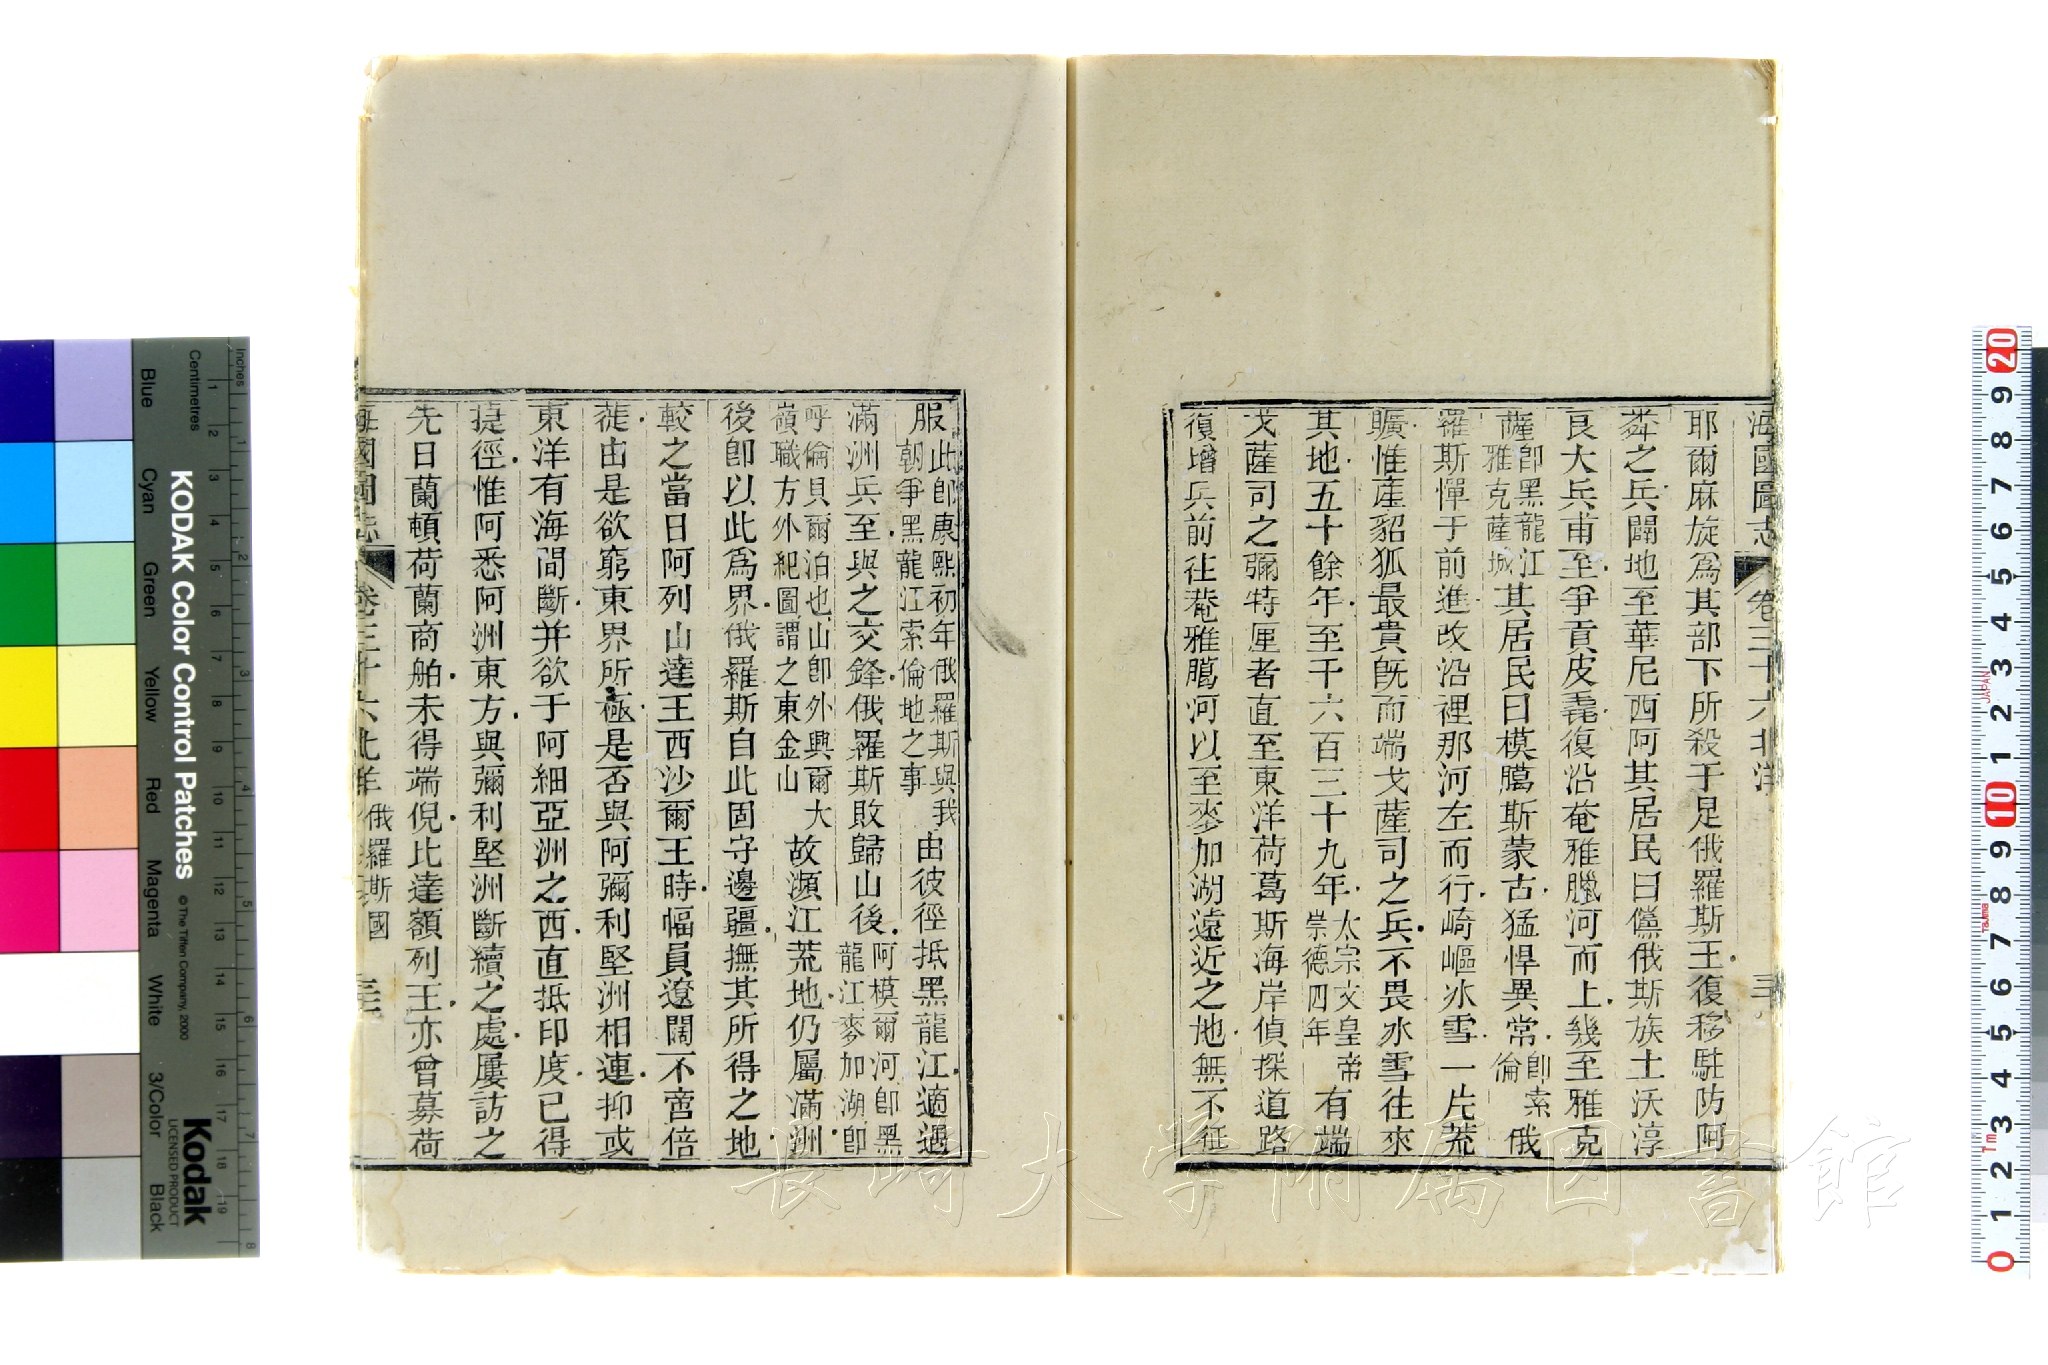 海國圖志 卷三十六北洋
耶爾麻旋爲其部下所殺于足俄羅斯王復移駐防阿
莽之兵闢地至華尼西阿其居民曰儻俄斯族土沃淳
良大兵甫至爭貢皮毳復沿奄雅臘河而上幾至雅克
薩卽黑龍江雅克薩城其居民曰模臈斯蒙古猛悍異常卽索倫俄
羅斯憚于前進改沿裡那河左而行崎嶇冰雪一片荒
曠惟産貂狐最貴旣而端戈薩司之兵不畏冰雪往來
其地五十餘年至千六百三十九年太宗文皇帝崇德四年有端
戈薩司之彌特厘者直至東洋荷葛斯海岸偵探道路
復增兵前往菴雅臈河以至麥加湖遠近之地無不征
服此卽康熙初年俄羅斯與我朝爭黑龍江索倫地之事由彼徑抵黑龍江適遇
滿洲兵至與之交鋒俄羅斯敗歸山後阿模爾河卽黑龍江麥加湖卽
呼倫貝爾泊也山卽外興爾大嶺職方外紀圖謂之東金山故瀕江荒地仍屬滿洲
後卽以此爲界俄羅斯自此固守邊疆撫其所得之地
較之當日阿列山達王西沙爾王時幅員遼闊不啻倍
蓰由是欲窮東界所極是否與阿彌利堅洲相連抑或
東洋有海間斷并欲于阿細亞洲之西直抵印度已得
捷徑惟阿悉阿洲東方與彌利堅洲斷續之處屢訪之
先日蘭頓荷蘭商舶未得端倪比達額列王亦曾募荷
海國圖志 卷三十六北洋 俄羅斯國
KODAK Color Control Patches
© The Tiffen Company, 2000
Kodak
LICENSED PRODUCT
Inches
Centimetres
Blue Cyan Green Yellow Red Magenta White 3/Color Black
1 2 3 4 5 6 7 8 9 10 11 12 13 14 15 16 17 18 19
1 2 3 4 5 6 7 8
20 9 8 7 6 5 4 3 2 1 10 9 8 7 6 5 4 3 2 1 0
JAPAN
長崎大学附属図書館